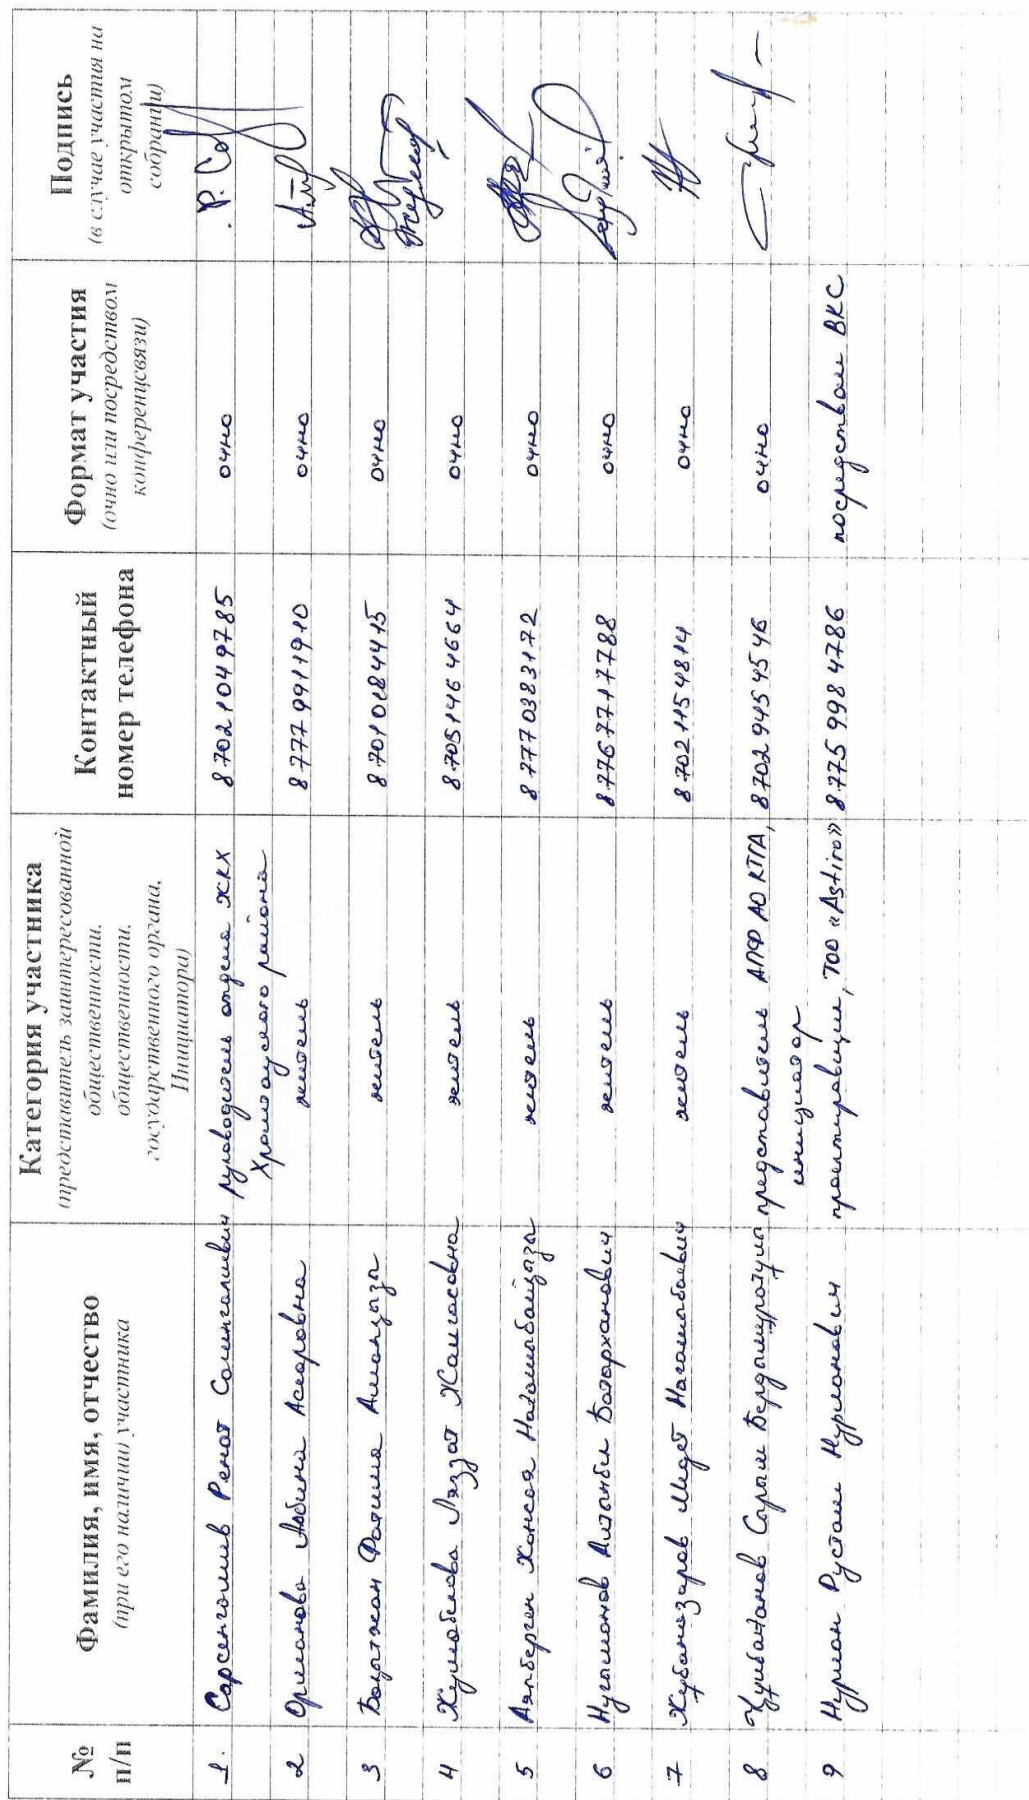 № п/п
Фамилия, имя, отчество
(при его наличии) участника
Категория участника
(представитель заинтересованной
общественности,
общественности,
государственного органа,
Инициатора)
Контактный
номер телефона
Формат участия
(очно или посредством
конференцсвязи)
Подпись
(в случае участия на
открытом
собрании)
1. Сарсенгалиев Ренат Салингалиевич руководитель отдела ЖКХ 87021049785 очно
Хромтауского района
2 Орманова Албина Аскаровна житель 87779911910 очно
3 Бақытжан Фатима Аманқызы житель 87010184415 очно
4 Жумабекова Ляззат Жангасовна житель 87051464664 очно
5 Аяпберген Жансая Нағашыбайқызы житель 87770383172 очно
6 Нугыманов Алтынбек Батырханович житель 87767717788 очно
7 Жубаназаров Медет Нагашыбаевич житель 87021154814 очно
8 Құлбатанов Сарым Бердімұратұлы представитель АПФ АО КТГА, 87029454546 очно
инициатор
9 Нурман Рустам Нурманович проектировщик, ТОО «Astiro» 8 775 998 4786 посредством ВКС